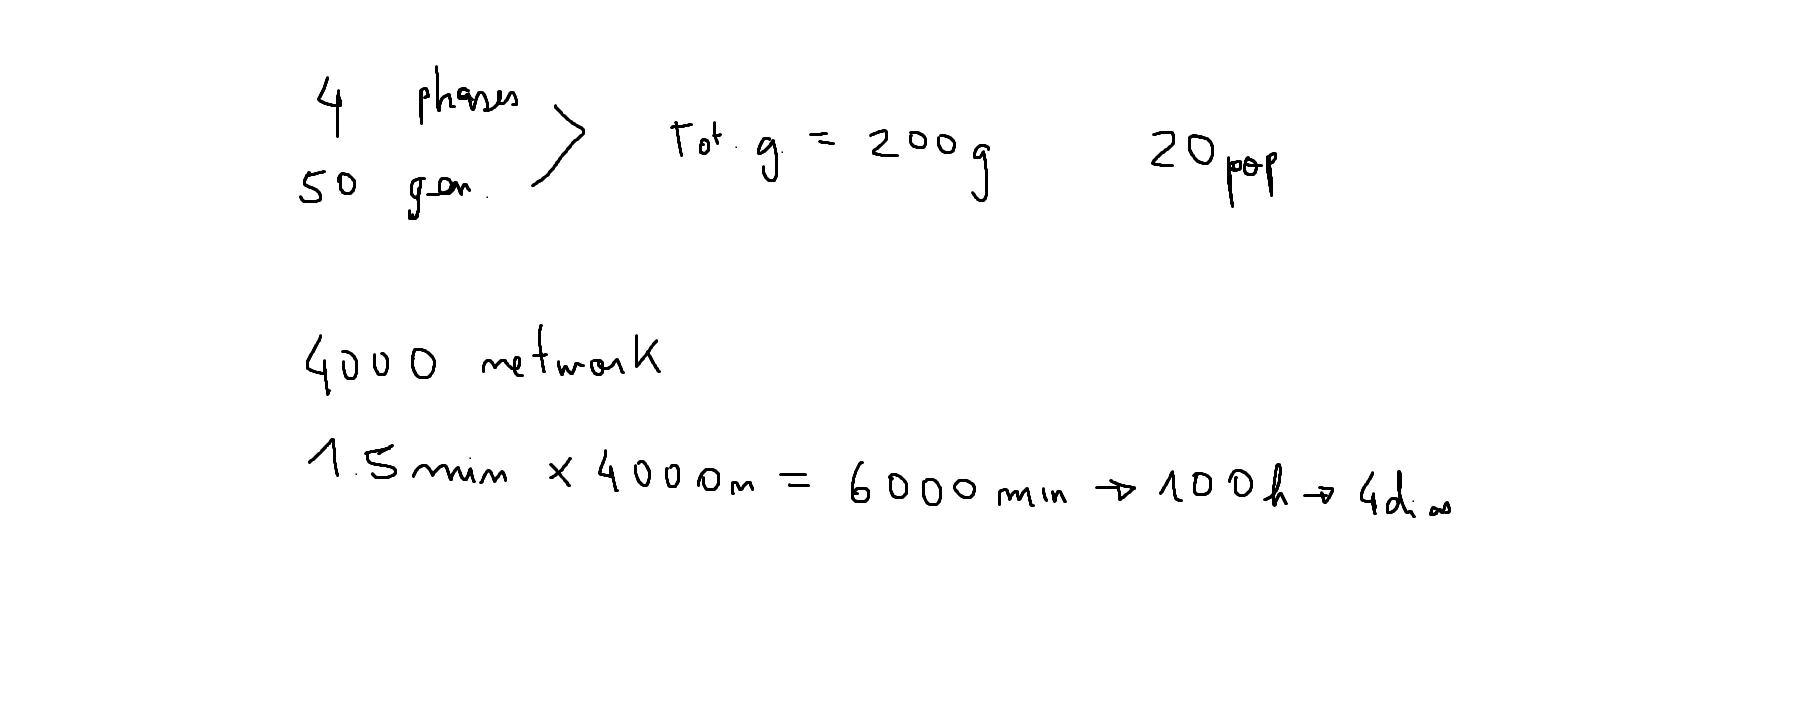 4 phases
50 gen.
Tot. g = 200g
20 pop
4000 network
1.5 min x 4000 n = 6000 min → 100h → 4 dias